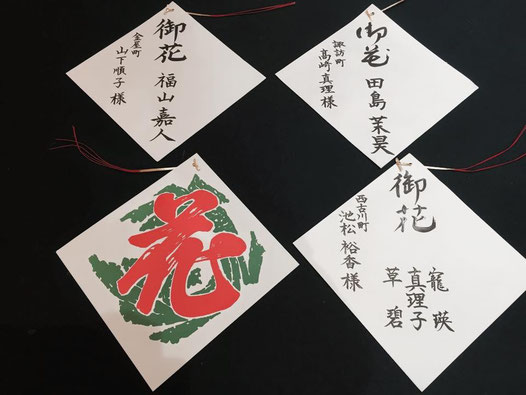 御花 福山嘉人
金屋町
山下順子様
御花 田島茉昊
諏訪町
高崎真理様
花
御花
寵瑛
真理子
草碧
西古川町
池松裕香様